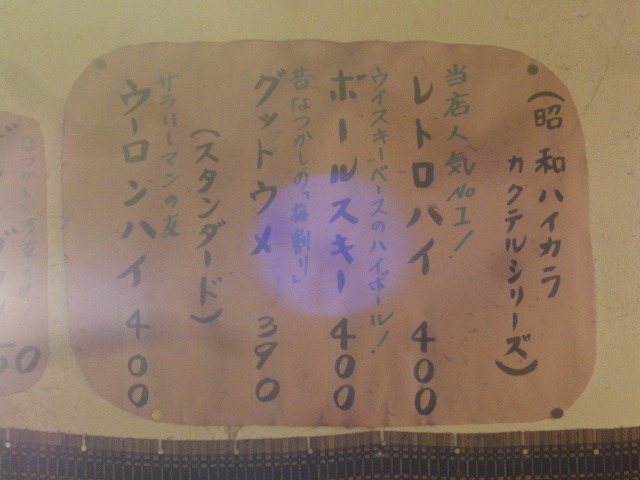 (昭和ハイカラ
カクテルシリーズ)
当店人気No1!
レトロハイ 400
ウイスキーベースのハイボール!
ボールスキー 400
昔なつかしの「梅割り」
グットウメ 390
(スタンダード)
サラリーマンの友
ウーロンハイ 400
50